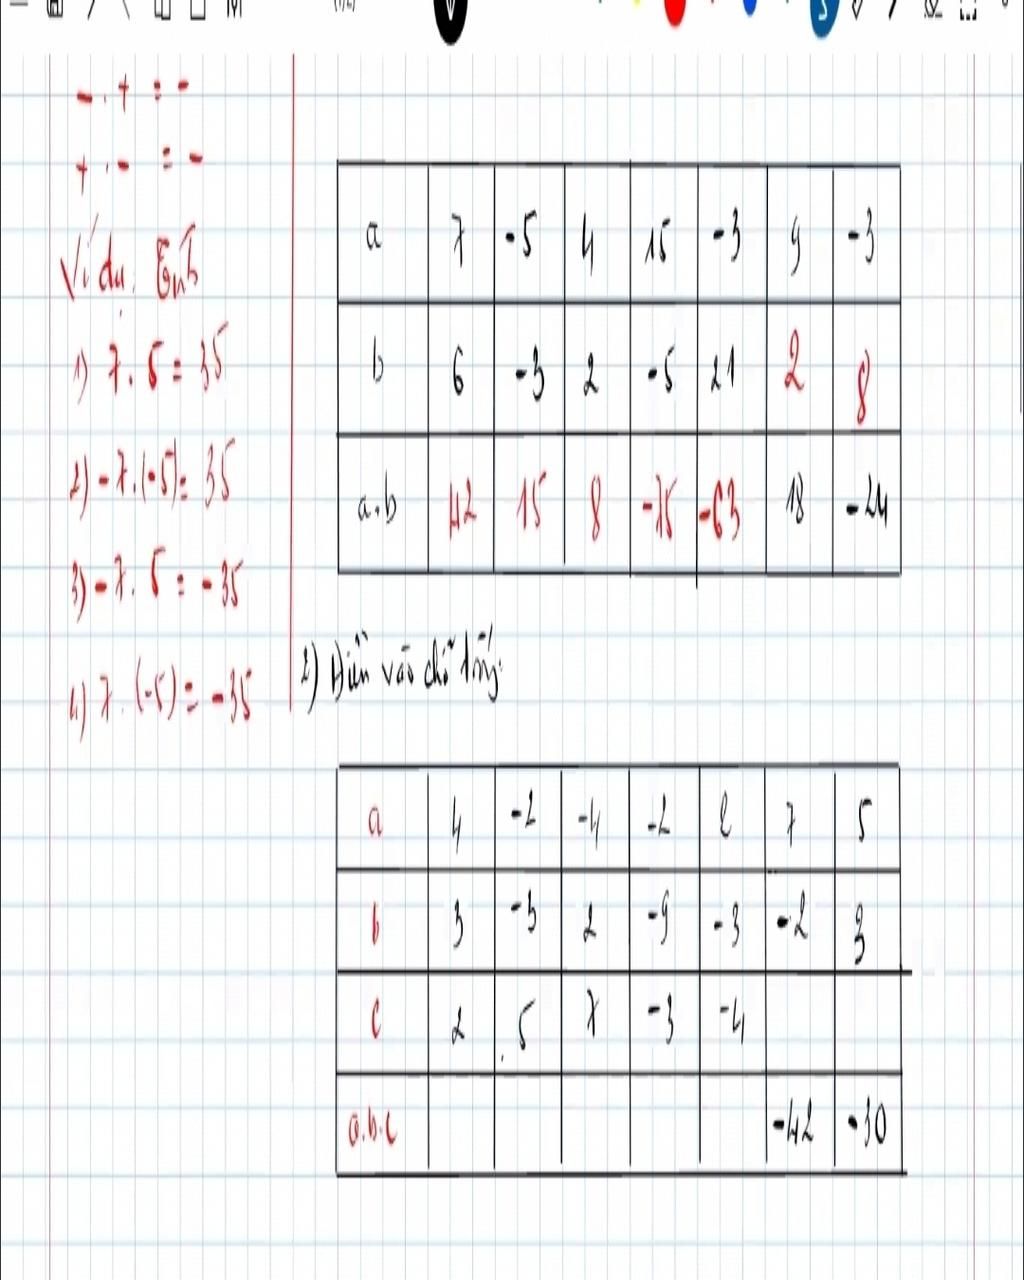 - . + = -
+ . - = -
Ví dụ: Tính
1) 7. 5 = 35
2) -7.(-5) = 35
3) -7. 5 = -35
4) 7. (-5) = -35
a 7 -5 4 15 -3 9 -3
b 6 -3 2 -5 21 2 8
a.b 42 15 8 -75 -63 18 -24
2) Điền vào chỗ trống:
a 4 -2 -4 -2 2 7 5
b 3 -3 2 -9 -3 -2 3
c 2 5 7 -3 -4
a.b.c -42 -30